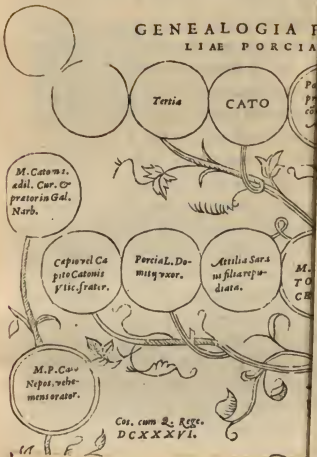 GENEALOGIA F
LIAE PORCIA
Tertia
CATO
M. Catonis.
ædil. Cur. &
prætor in Gal.
Narb.
Cæpio vel Ca
pito Catonis
Vtic. frater.
Porcia L. Do-
mitij vxor.
Attilia Sara
ni filia repu-
diata.
M.
TO
CE
M. P. Cato
Nepos, vehe-
mens orator.
Cos. cum Q. Rege.
DCXXXVI.